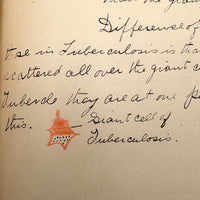 Difference of
use in Tuberculosis is tha
scattered all over the giant c
Tubercle they are at one p
this.
Giant cell of
Tuberculosis.